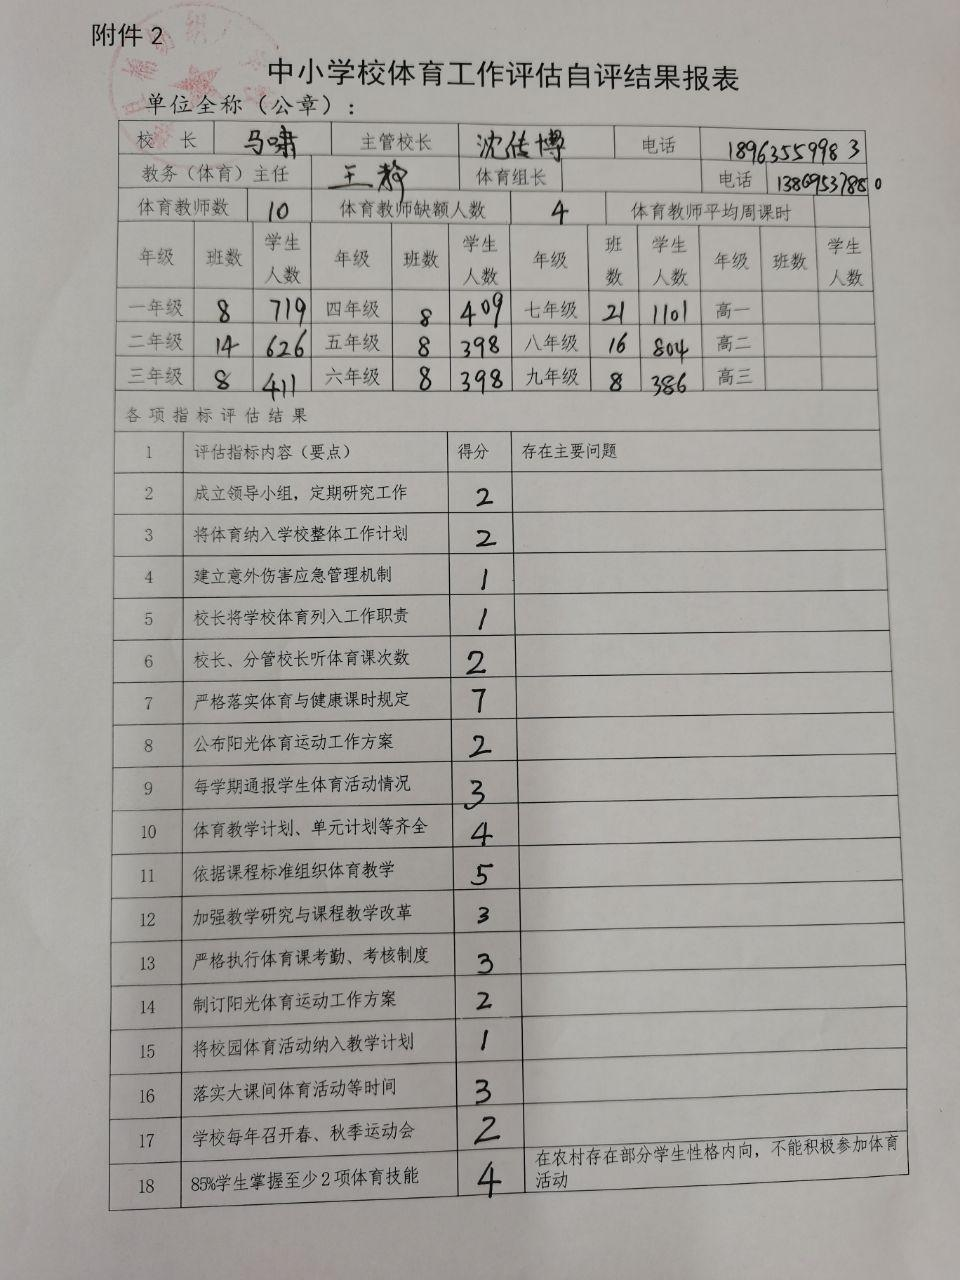 附件 2
中小学校体育工作评估自评结果报表
单位全称（公章）：
校 长 马啸 主管校长 沈传博 电话 18963559983
教务（体育）主任 王静 体育组长 电话 13869537880
体育教师数 10 体育教师缺额人数 4 体育教师平均周课时
年级 班数 学生人数 年级 班数 学生人数 年级 班数 学生人数 年级 班数 学生人数
一年级 8 719 四年级 8 409 七年级 21 1101 高一
二年级 14 626 五年级 8 398 八年级 16 804 高二
三年级 8 411 六年级 8 398 九年级 8 386 高三
各项指标评估结果
1 评估指标内容（要点） 得分 存在主要问题
2 成立领导小组，定期研究工作 2
3 将体育纳入学校整体工作计划 2
4 建立意外伤害应急管理机制 1
5 校长将学校体育列入工作职责 1
6 校长、分管校长听体育课次数 2
7 严格落实体育与健康课时规定 7
8 公布阳光体育运动工作方案 2
9 每学期通报学生体育活动情况 3
10 体育教学计划、单元计划等齐全 4
11 依据课程标准组织体育教学 5
12 加强教学研究与课程教学改革 3
13 严格执行体育课考勤、考核制度 3
14 制订阳光体育运动工作方案 2
15 将校园体育活动纳入教学计划 1
16 落实大课间体育活动等时间 3
17 学校每年召开春、秋季运动会 2
18 85%学生掌握至少2项体育技能 4 在农村存在部分学生性格内向，不能积极参加体育
活动